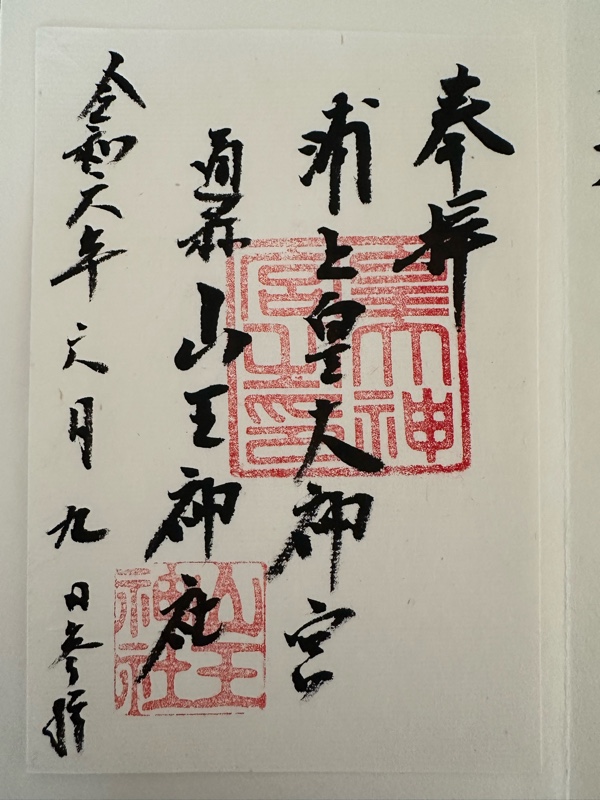 奉拝
浦上皇大神宮
通称 山王神社
令和六年 六月 九 日参拝
皇大神宮之印
山王神社